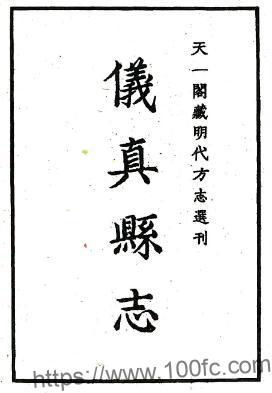 天一閣藏明代方志選刊
儀真縣志
https://www.100fc.com